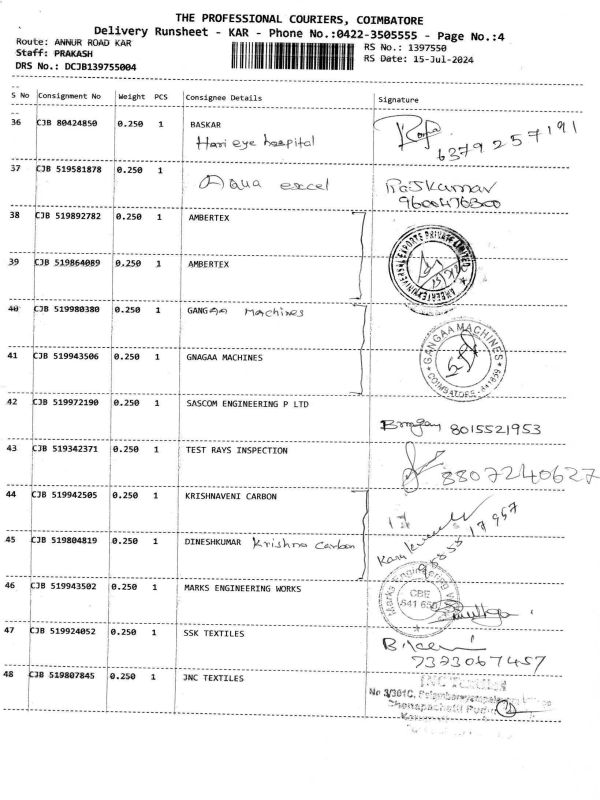 THE PROFESSIONAL COURIERS, COIMBATORE
Delivery Runsheet - KAR - Phone No.:0422-3505555 - Page No.:4
Route: ANNUR ROAD KAR
RS No.: 1397550
Staff: PRAKASH
RS Date: 15-Jul-2024
DRS No.: DCJB139755004
S No Consignment No Weight PCS Consignee Details Signature
36 CJB 80424850 0.250 1 BASKAR
Hari eye hospital
6379257191
37 CJB 519581878 0.250 1
Aqua excel
Rajkumar
9600476300
38 CJB 519892782 0.250 1 AMBERTEX
39 CJB 519864089 0.250 1 AMBERTEX
40 CJB 519980380 0.250 1 GANGAA Machines
GANGAA MACHINES
COIMBATORE
41 CJB 519943506 0.250 1 GNAGAA MACHINES
42 CJB 519972190 0.250 1 SASCOM ENGINEERING P LTD
8015521953
43 CJB 519342371 0.250 1 TEST RAYS INSPECTION
8807240627
44 CJB 519942505 0.250 1 KRISHNAVENI CARBON
45 CJB 519804819 0.250 1 DINESHKUMAR Krishna Carbon
46 CJB 519943502 0.250 1 MARKS ENGINEERING WORKS
Marks Engineering
CBE
47 CJB 519924052 0.250 1 SSK TEXTILES
7323067457
48 CJB 519807845 0.250 1 JNC TEXTILES
No 3/301C,